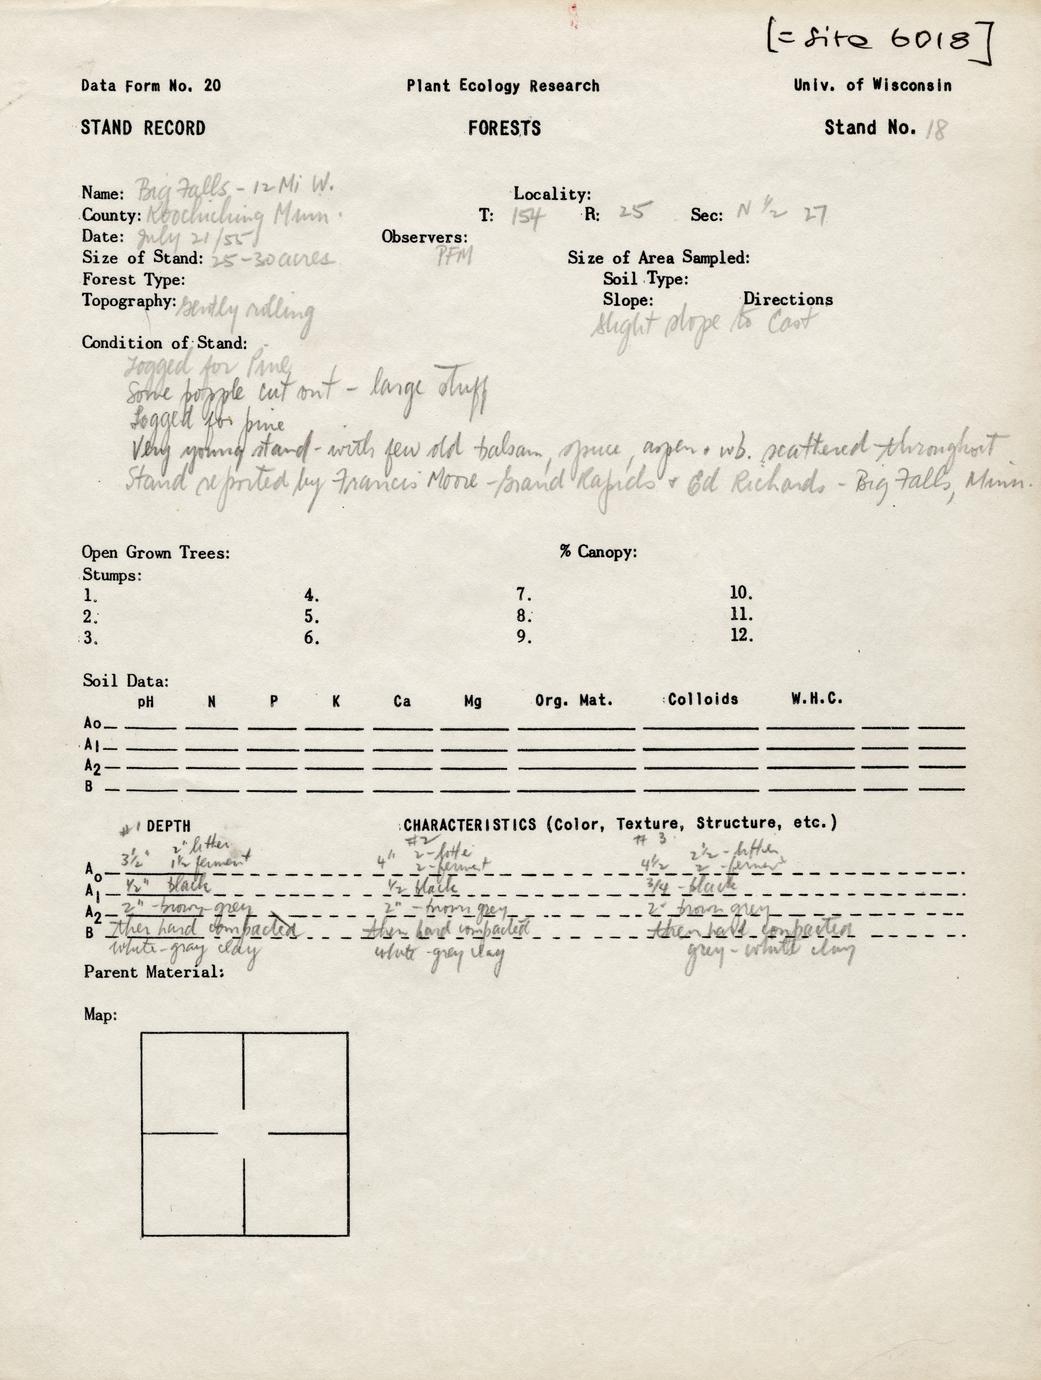 [= Site 6018]
Data Form No. 20 Plant Ecology Research Univ. of Wisconsin
STAND RECORD FORESTS Stand No. 18
Name: Big Falls - 12 Mi W. Locality:
County: Koochiching Minn. T: 154 R: 25 Sec: N 1/2 27
Date: July 21/55 Observers: PFM
Size of Stand: 25-30 acres Size of Area Sampled:
Forest Type: Soil Type:
Topography: Gently rolling Slope: Directions
Slight slope to East
Condition of Stand:
Logged for Pine
Some popple cut out - large stuff
Logged for pine
Very young stand - with few old balsam, spruce, aspen + wb. scattered throughout
Stand reported by Francis Moore - Grand Rapids + Ed Richards - Big Falls, Minn.
Open Grown Trees: % Canopy:
Stumps:
1. 4. 7. 10.
2. 5. 8. 11.
3. 6. 9. 12.
Soil Data:
pH N P K Ca Mg Org. Mat. Colloids W.H.C.
Ao
A1
A2
B
DEPTH CHARACTERISTICS (Color, Texture, Structure, etc.)
#1 #2 #3
2" litter 2 - litter 2 1/2 - litter
Ao 3 1/2" 1 1/2 ferment 4" 2 - ferment 4 1/2 2 - ferment
A1 1/2" black 1/2 black 3/4 - black
A2 2" - brown-grey 2" - brown grey 2" brown grey
B then hard compacted then hard compacted then hard compacted
white-gray clay white-grey clay grey-white clay
Parent Material:
Map: